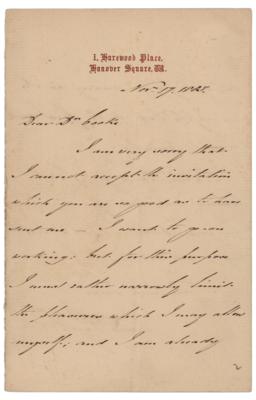 1, Harewood Place,
Hanover Square, W.
Nov. 17. 188
Dear Dr Cooke
I am very sorry that
I cannot accept the invitation
which you are so good as to have
sent me — I want to go on
working: but for this purpose
I must rather narrowly limit
the pleasures which I may allow
myself; and I am already